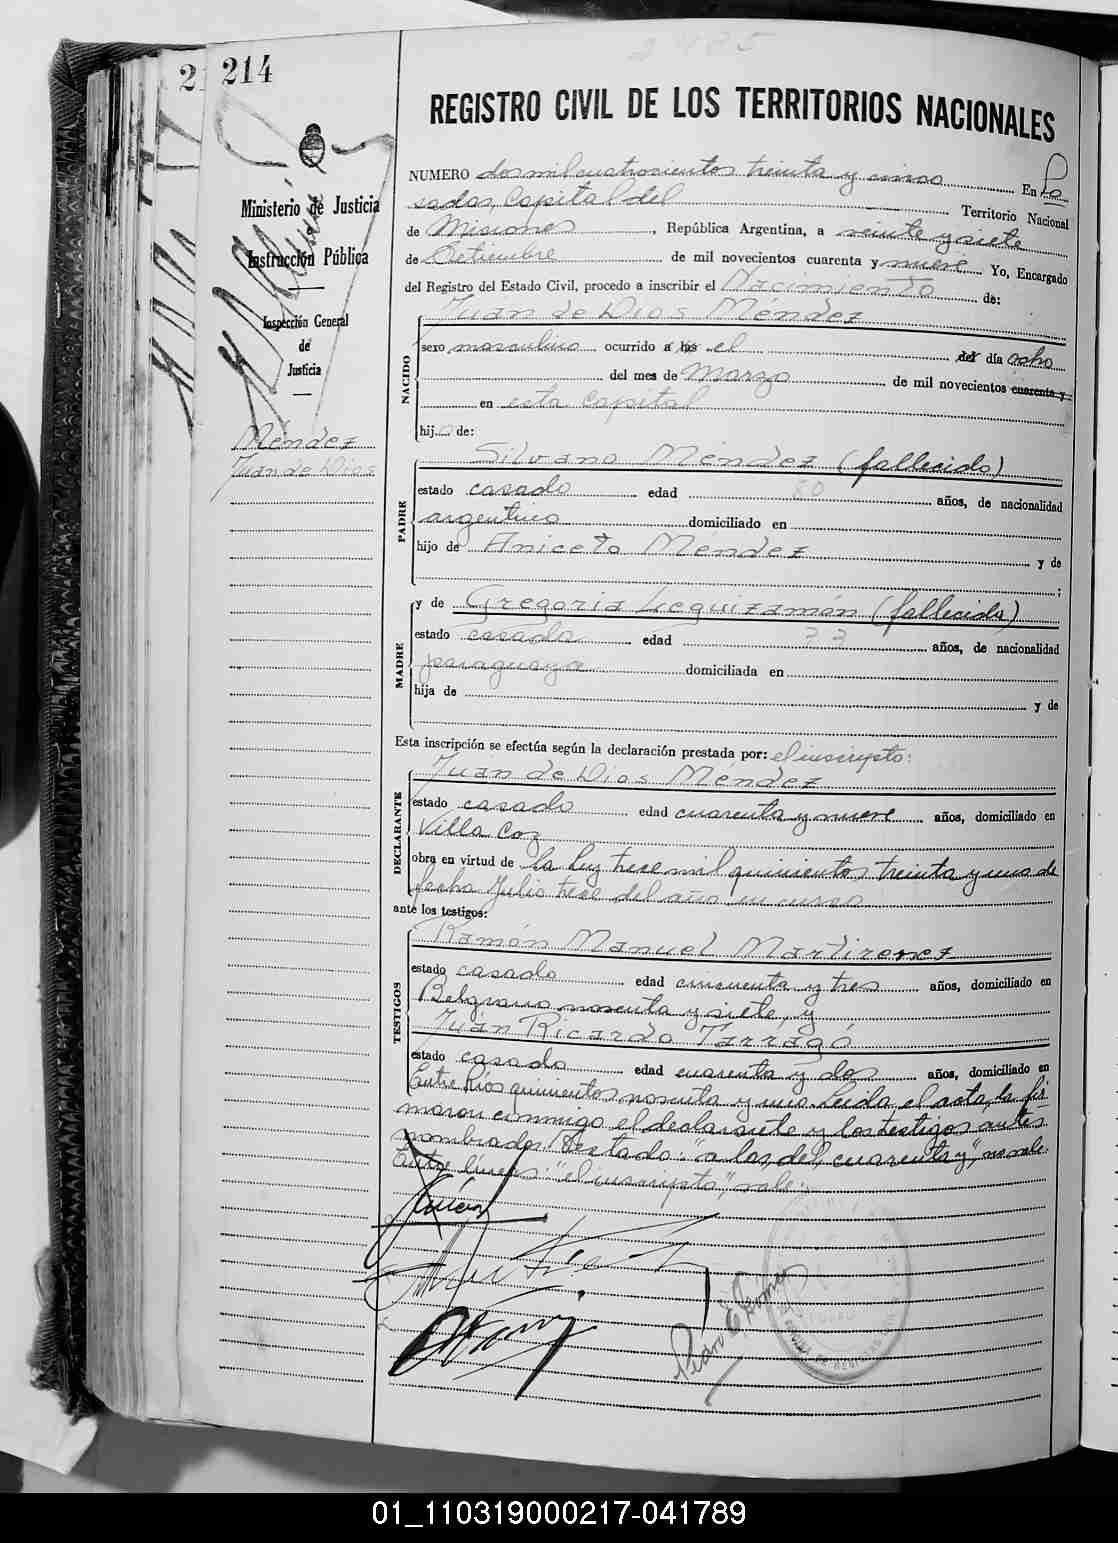 2435
214
REGISTRO CIVIL DE LOS TERRITORIOS NACIONALES
Ministerio de Justicia
Instrucción Pública
Inspección General
de
Justicia
Méndez
Juan de Dios
NUMERO dos mil cuatrocientos treinta y cinco En Po
sadas, Capital del Territorio Nacional
de Misiones, República Argentina, a veinte y siete
de Octiembre de mil novecientos cuarenta y nueve Yo, Encargado
del Registro del Estado Civil, procedo a inscribir el Nacimiento de:
NACIDO
Juan de Dios Méndez
sexo masculino ocurrido a las el del día ocho
del mes de Marzo de mil novecientos cuarenta y
en esta Capital
hijo de:
PADRE
Silvano Méndez (fallecido)
estado casado edad 60 años, de nacionalidad
argentino domiciliado en
hijo de Aniceto Méndez y de
MADRE
y de Gregoria Leguizamón (fallecida)
estado casada edad 33 años, de nacionalidad
paraguaya domiciliada en
hija de y de
Esta inscripción se efectúa según la declaración prestada por: el inscripto:
DECLARANTE
Juan de Dios Méndez
estado casado edad cuarenta y nueve años, domiciliado en
Villa Coz
obra en virtud de la Ley trece mil quinientos treinta y uno de
fecha Julio trece del año en curso
ante los testigos:
TESTIGOS
Ramón Manuel Martirenez
estado casado edad cincuenta y tres años, domiciliado en
Belgrano noventa y siete, y
Juan Ricardo Tarragó
estado casado edad cuarenta y dos años, domiciliado en
Entre Ríos quinientos noventa y uno. Leída el acta, la fir
maron conmigo el declarante y los testigos antes
nombrados. Testado: "a las, del, cuarenta y", no vale.
Entre líneas: "el inscripto", vale.
01_110319000217-041789